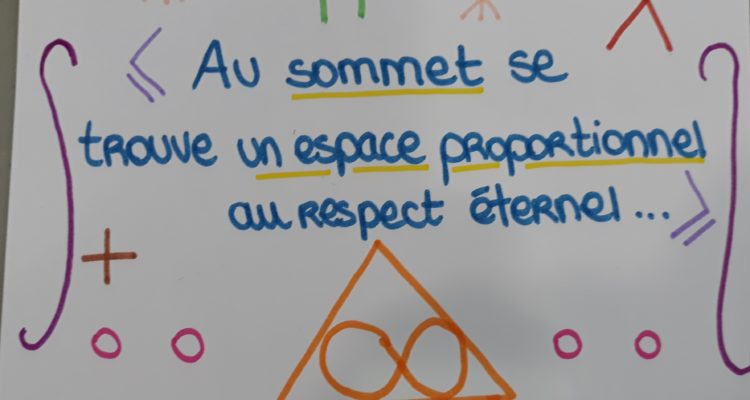 ≪ Au sommet se
trouve un espace proportionnel
au respect éternel... ≫